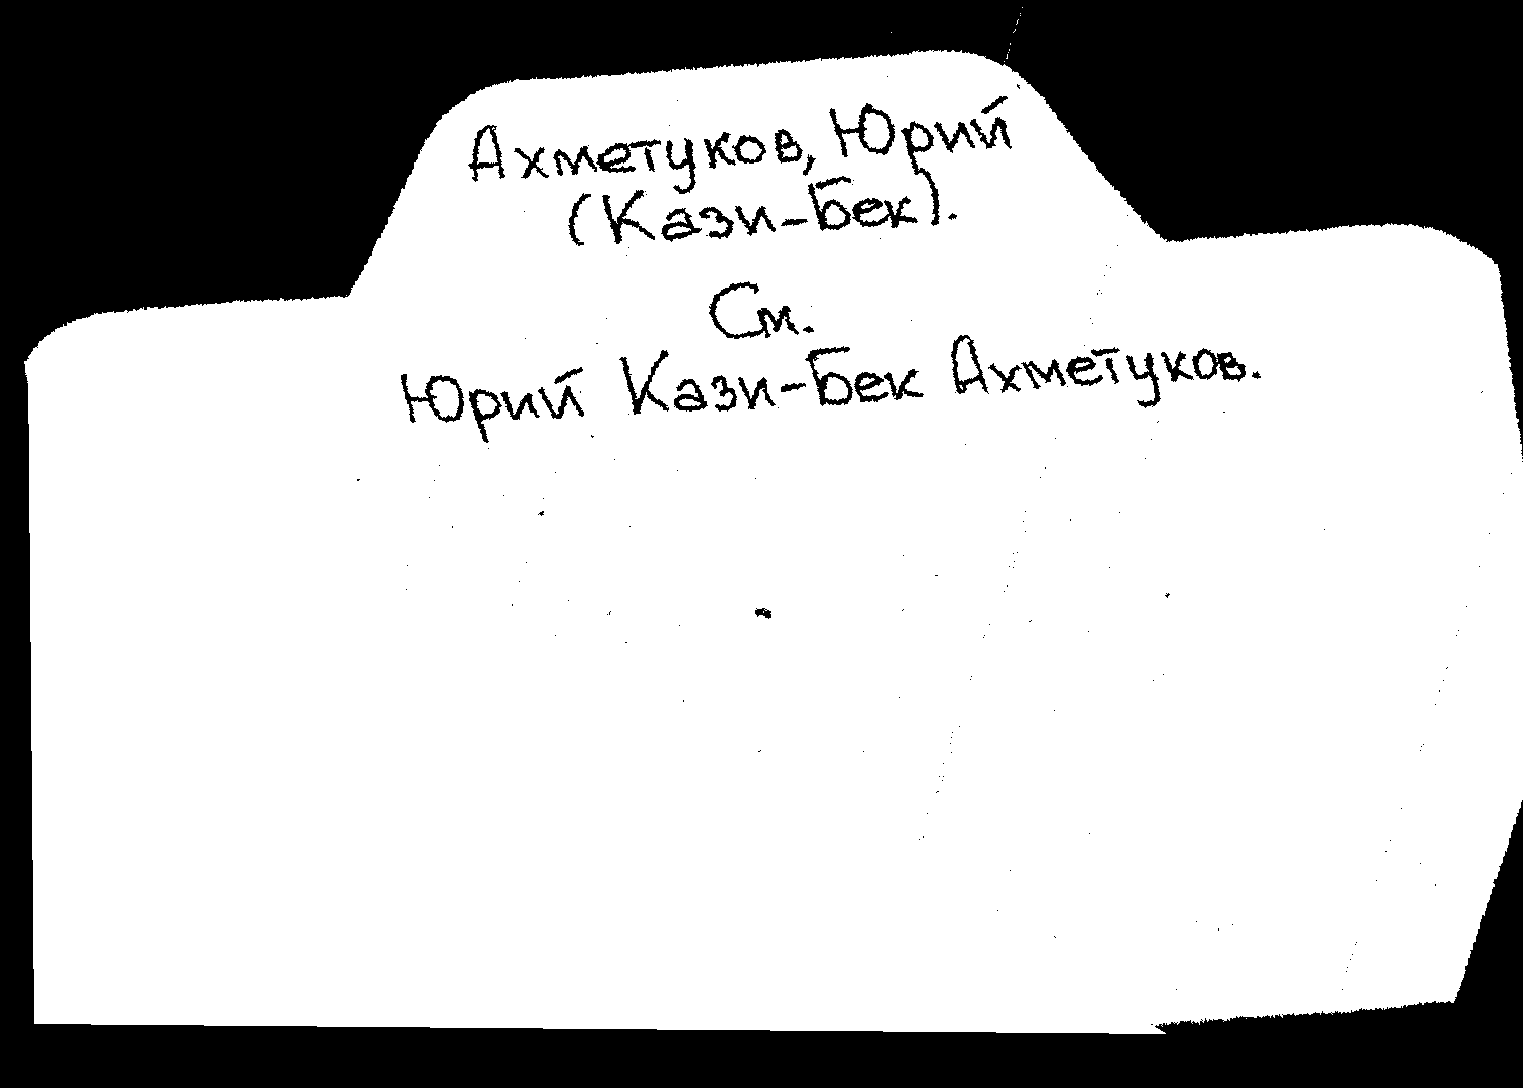 Ахметуков, Юрий
(Кази-Бек).
См.
Юрий Кази-Бек Ахметуков.